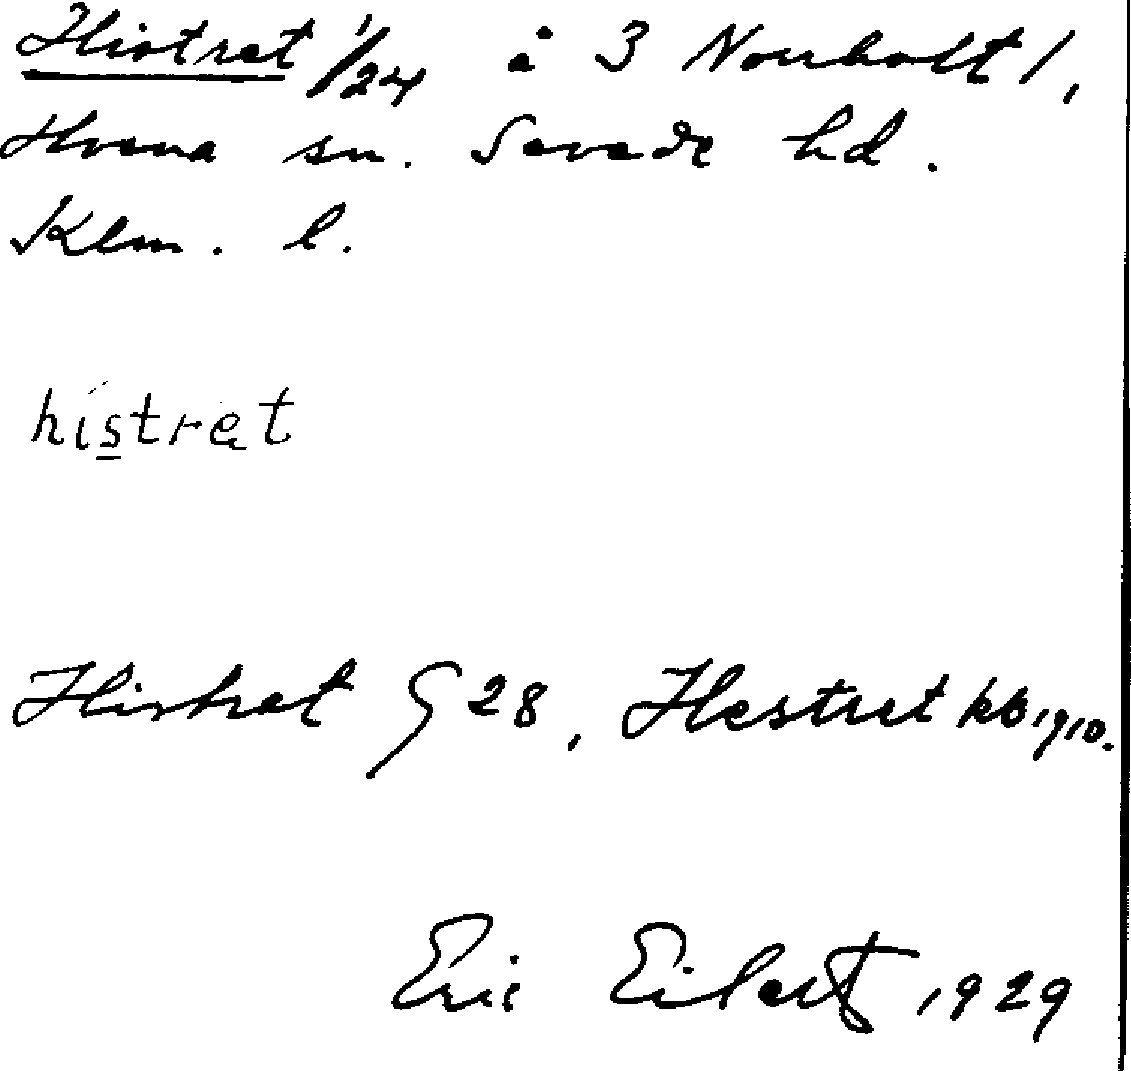 Histret 1/24 å 3 Norrhult 1,
Hvena sn. Sevede hd.
Klm. l.
histrat
Histret G 28, Hestret kb 1910.
Eric Eilert 1929